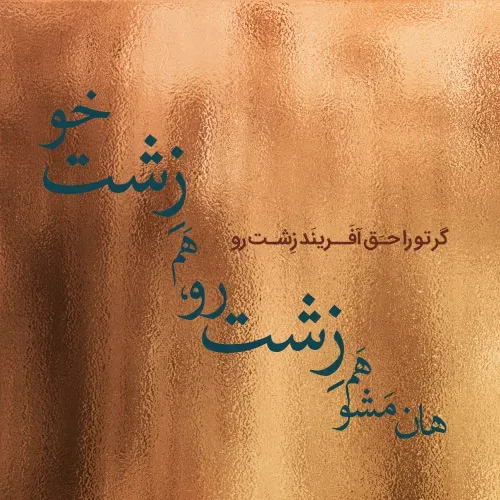 گر تو را حَق آفَرینَد زِشت رو
هان مَشو هَم زِشت رو، هَم زِشت خو